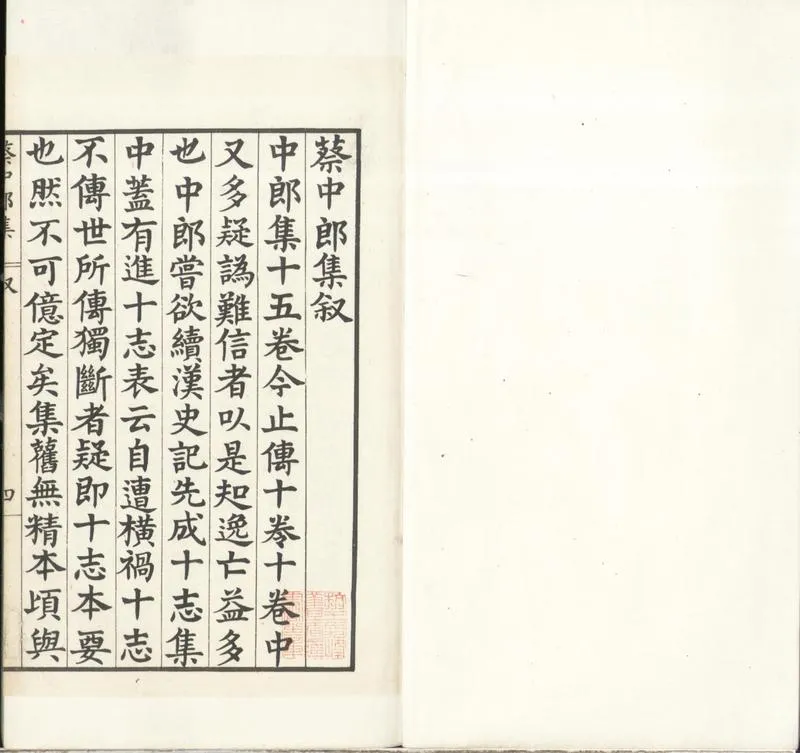 蔡中郎集叙
中郎集十五卷今止傳十卷十卷中
又多疑譌難信者以是知逸亡益多
也中郎嘗欲續漢史記先成十志集
中蓋有進十志表云自遭橫禍十志
不傳世所傳獨斷者疑即十志本要
也然不可億定矣集舊無精本頃與
蔡中郎集 叙 四